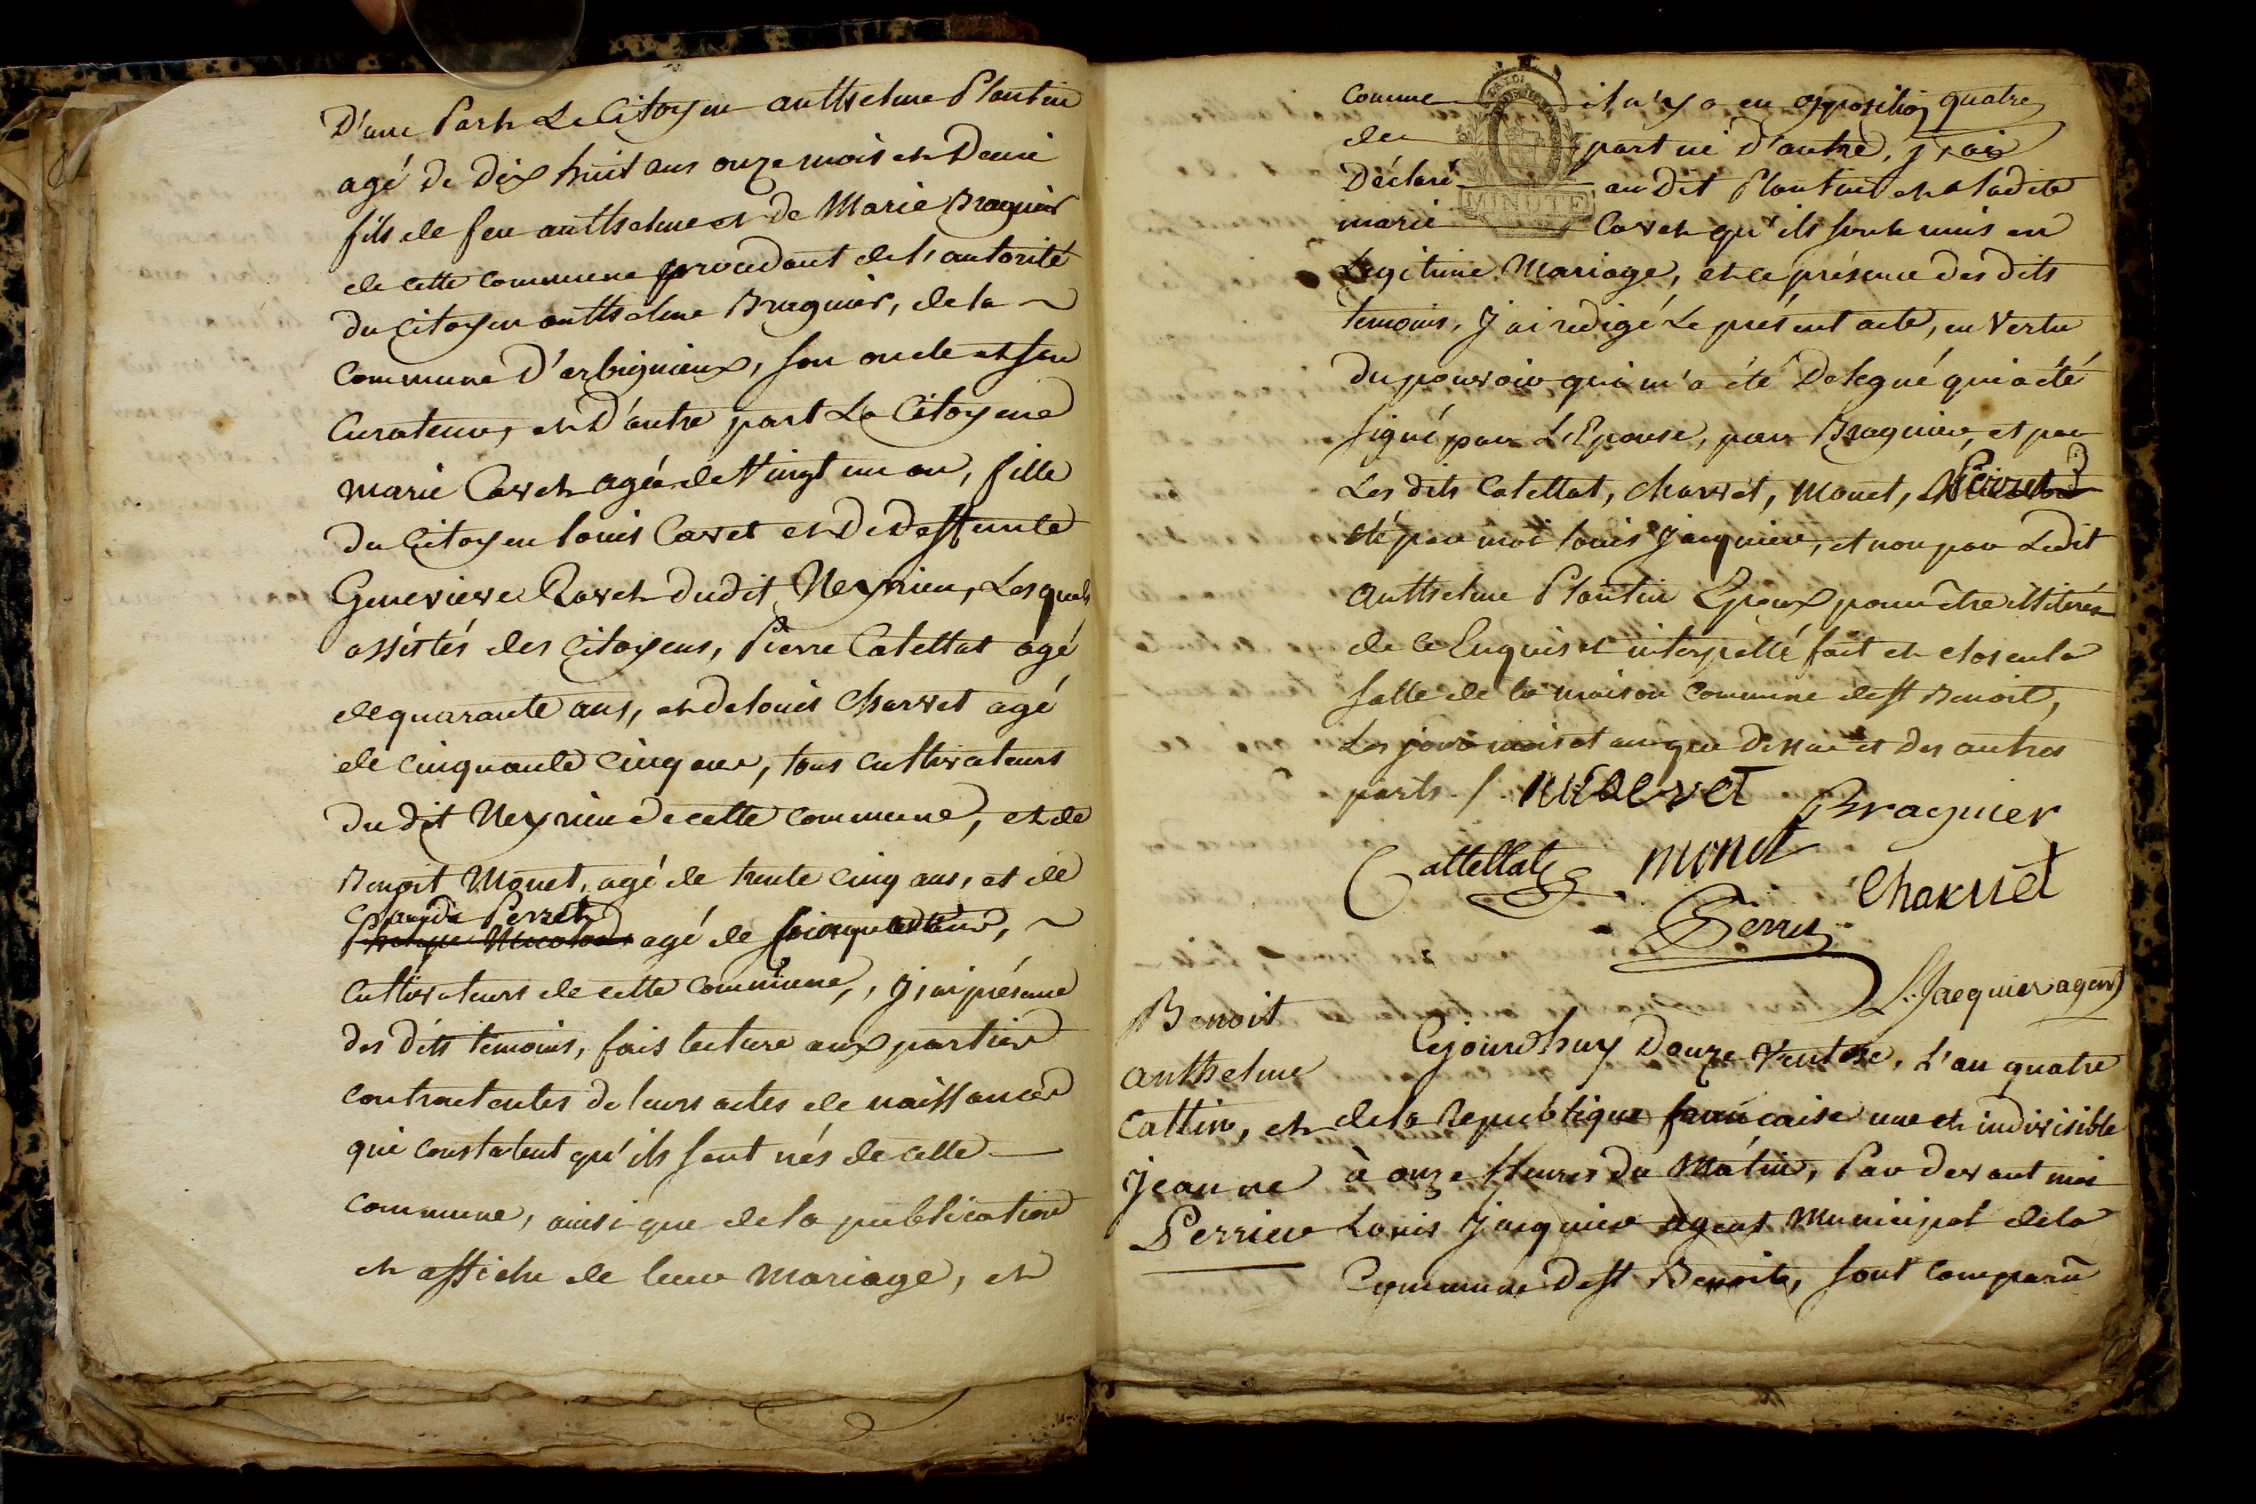 D'une Part Le Citoyen anthelme Plantin
agé de dix huit ans onze mois et Demi
fils de feu anthelme et de Marie Braguier
de cette commune procedant de l'autorité
du Citoyen anthelme Braguier, de la ~
Commune D'arbignieux, son oncle et son
Curateur, et D'autre part La Citoyene
Marie Cavet agée de Vingt un an, fille
du Citoyen louis Cavet et De Deffunte
Genevieve Ravet dudit Neyrieu, Lesquels
assistés des Citoyens, Pierre Catettat agé
de quarante ans, et de louis Charvet agé
de cinquante cinq ans, tous cultivateurs
du dit Neyrieu de cette commune, et de
Benoit Monet, agé de trente cinq ans, et de
Claude Perret
agé de
Cultivateurs de cette Commune, j'ai présence
des dits temoins, fais lecture aux parties
contractentes de leurs actes de naissances
qui constatent qu'ils sont nés de cette —
commune, ainsi que de la publication
et affiche de leur Mariage, et
comme il n'y a eu opposition quatre
de part ni d'autre, j'ai
Déclaré au dit Plantin et a ladite
MINUTE
marie Cavet qu'ils sont unis en
Legitime Mariage, et ce présence des dits
temoins, J'ai redigé Le présent acte, en Vertu
du pouvoir qui m'a été Delegué qui a été
signé par L'Epouse, par Braguier, et par
Les dits Catettat, charvet, Monet, Perret
et par moi louis Jacquier, et non par Ledit
anthelme Plantin Epoux pour être illiteré
de ce Enquis et interpellé fait et clos en la
salle de la maison commune de st Benoit,
Les jour mois et an que dessus et des autres
parts. / M Cavet Braguier
Cattettat monet
Charuet
Perret
L. Jacquier agent
Benoit
anthelme
Cattin, et
Jeanne
Perrier
Cejourd'huy Douze Ventose, L'an quatre
de la Republique francaise une et indivisible
à onze Heures du Matin, Par devant moi
Louis Jacquier agent Municipal de la
Commune de st Benoit, sont Comparû